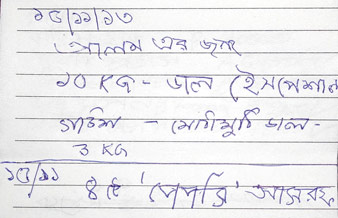 ১৫/১১/১৩
আলম এর জন্য
১০ KG - ডাল (ইসপেশাল
গাউস - মোটামুটি ডাল -
3 KG
১৫/১১
৪ টি 'পেপার' আসরফ